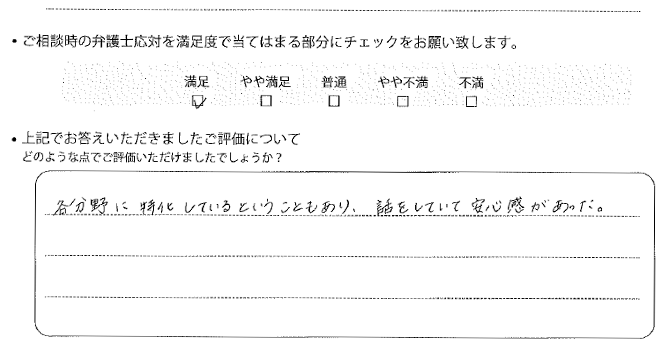 ・ご相談時の弁護士応対を満足度で当てはまる部分にチェックをお願い致します。
満足 やや満足 普通 やや不満 不満
☑ □ □ □ □
・上記でお答えいただきましたご評価について
どのような点でご評価いただけましたでしょうか？
各分野に特化しているということもあり、話をしていて安心感があった。